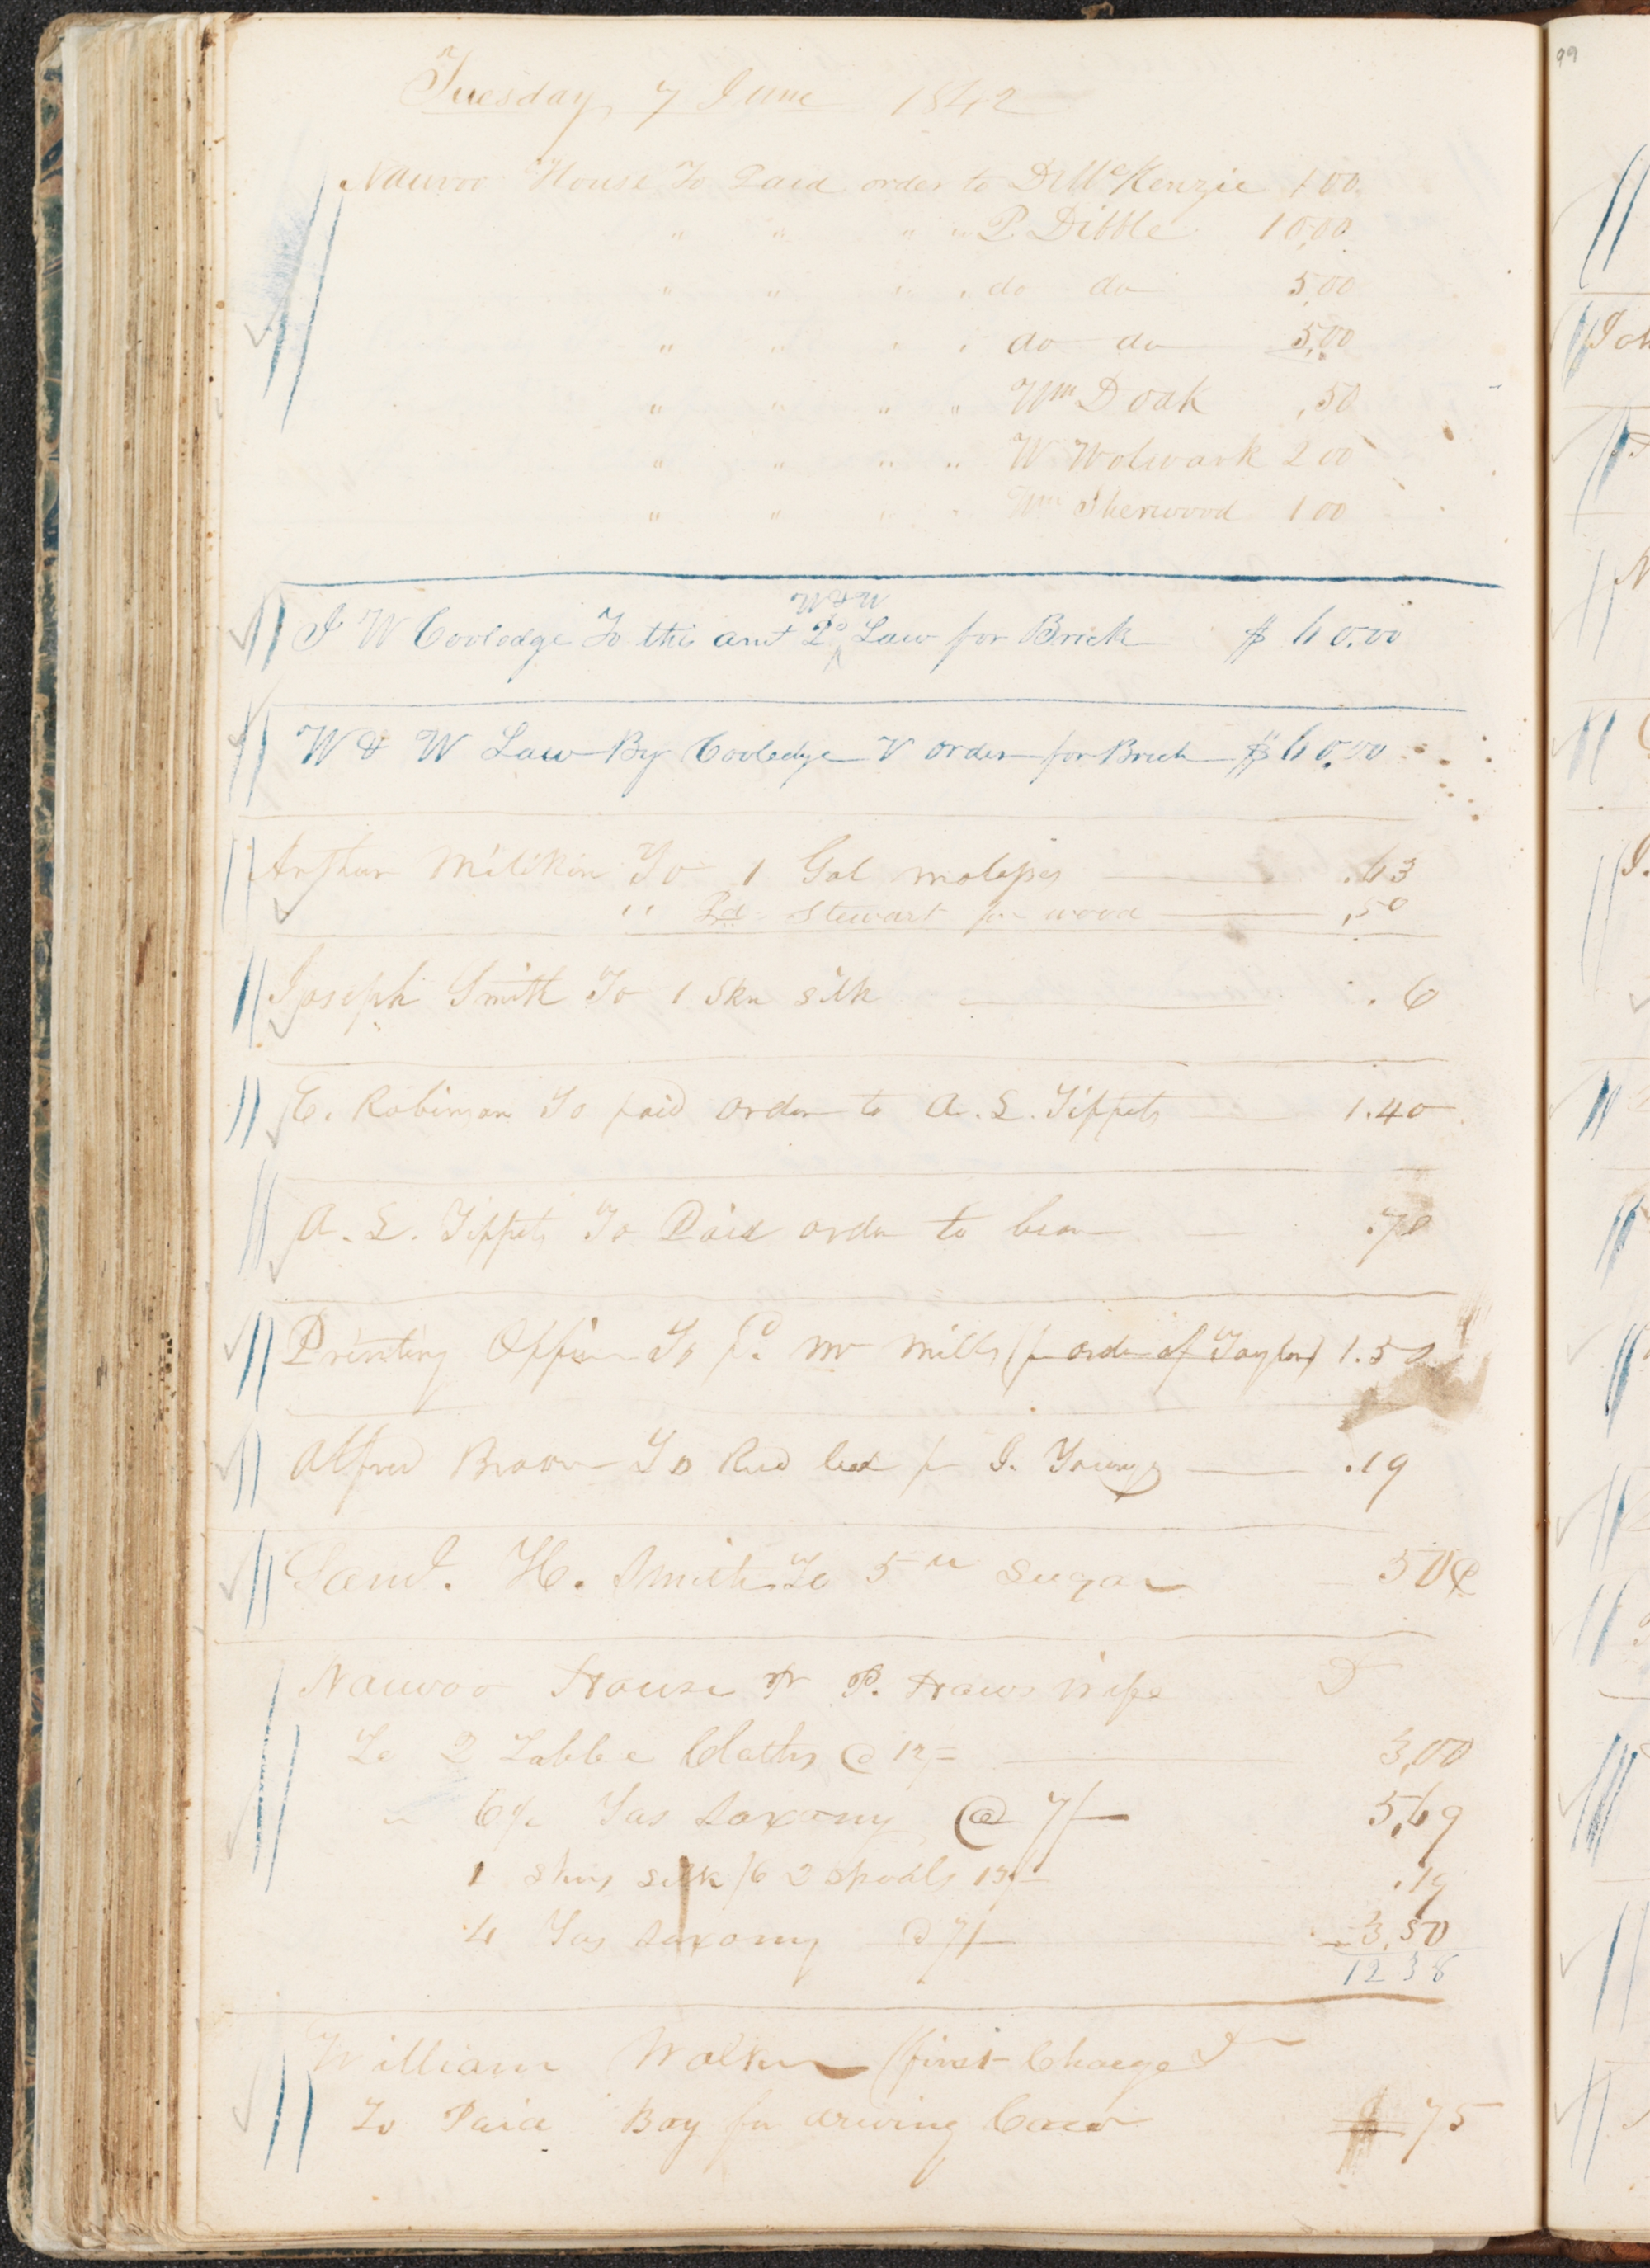 Tuesday 7 June 1842
Nauvoo House To Paid order to D McKenzie 1 00
" " " " P Dibble 10,00
" " " " do do 5,00
" " " " do do 5,00
" " " " Wm Doak ,50
" " " " W Wolwark 2 00
" " " " Wm Sherwood 1 00
W & W
J W Coolodge To this amt Pd Law for Brick $ 60.00
W & W Law By Cooledge order for Brick $60.00
Arthur Milikin To 1 Gal molasses .63
" Pd Stewart for wood ,50
Joseph Smith To 1 Skn silk .6
E. Robinson To paid order to A. L. Tippets 1.40
A. L. Tippets To Paid order to 
Printing Office To pd Mr Mills (pr order of Taylor) 1.50
Alfred Brown To Red lead pr J. Young .19
Saml. H. Smith To 5 lb Sugar 50¢
Nauvoo House Pr P. Haws Wife Dr
To 2 Table Cloths @ 12/= 3,00
" 6½ Yds Saxony @ 7/— 5,69
1 Skns silk /6 2 spools ,19
4 Yds Saxony @ 7/— 3,50
12 38
William Walker (first Charge Dr
To Paid Boy for driving Cows $ 75
99